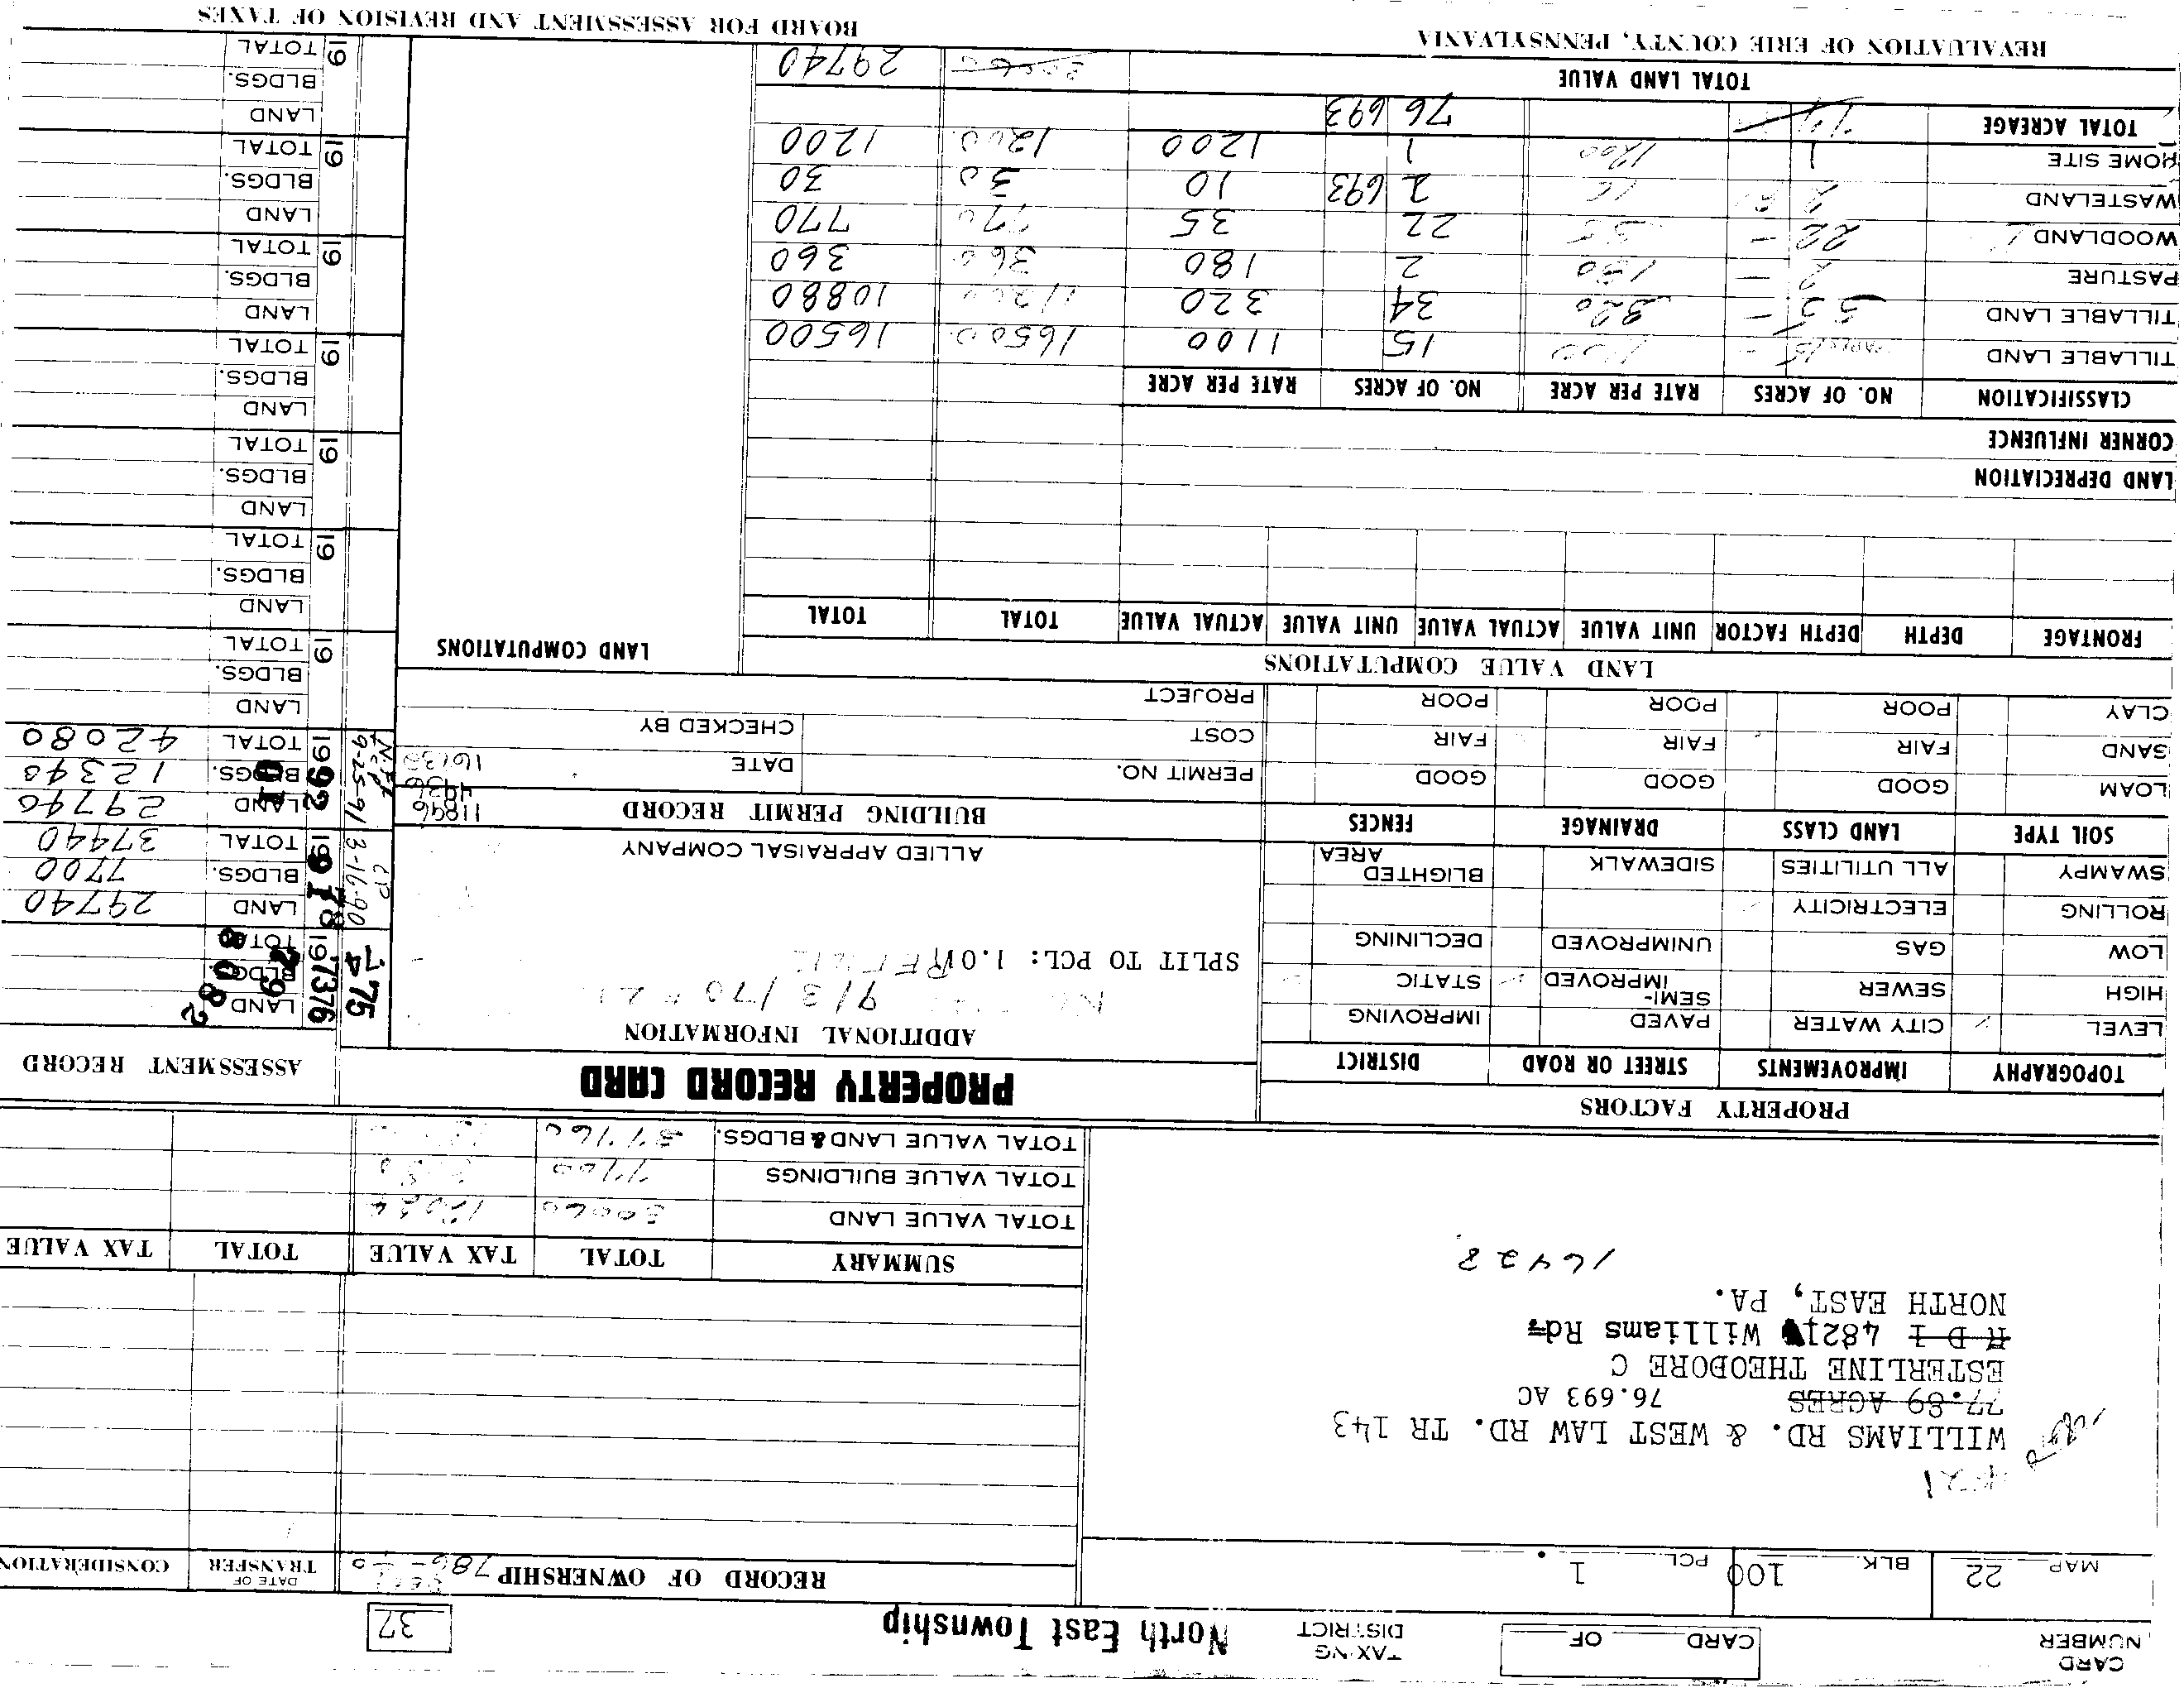 CARD NUMBER
CARD OF
TAXING DISTRICT North East Township
37
MAP 22 BLK. 100 PCL 1 .
RECORD OF OWNERSHIP 786
DATE OF TRANSFER
CONSIDERATION
4821
WILLIAMS RD. & WEST LAW RD. TR 143
77.89 ACRES 76.693 AC
ESTERLINE THEODORE C
R D 1 4821 Williams Rd.
NORTH EAST, PA.
16428
SUMMARY TOTAL TAX VALUE TOTAL TAX VALUE
TOTAL VALUE LAND 30060 12024
TOTAL VALUE BUILDINGS 7700
TOTAL VALUE LAND & BLDGS. 37760
PROPERTY FACTORS
TOPOGRAPHY IMPROVEMENTS STREET OR ROAD DISTRICT
LEVEL CITY WATER PAVED IMPROVING
HIGH SEWER SEMI-IMPROVED STATIC
LOW GAS UNIMPROVED DECLINING
ROLLING ELECTRICITY
SWAMPY ALL UTILITIES SIDEWALK BLIGHTED AREA
SOIL TYPE LAND CLASS DRAINAGE FENCES
LOAM GOOD GOOD GOOD
SAND FAIR FAIR FAIR
CLAY POOR POOR POOR
PROPERTY RECORD CARD
ADDITIONAL INFORMATION
SPLIT TO PCL: 1.01
ALLIED APPRAISAL COMPANY
BUILDING PERMIT RECORD
11896
4936
PERMIT NO. DATE
COST CHECKED BY
PROJECT
ASSESSMENT RECORD
'75
19 73 76 LAND
BLDGS.
TOTAL
CP 3-16-90
19 78 LAND 29740
BLDGS. 7700
TOTAL 37440
9-25-91
1992 LAND 29740
BLDGS. 12340
TOTAL 42080
19 LAND
BLDGS.
TOTAL
19 LAND
BLDGS.
TOTAL
19 LAND
BLDGS.
TOTAL
19 LAND
BLDGS.
TOTAL
19 LAND
BLDGS.
TOTAL
19 LAND
BLDGS.
TOTAL
19 LAND
BLDGS.
TOTAL
LAND VALUE COMPUTATIONS
LAND COMPUTATIONS
FRONTAGE DEPTH DEPTH FACTOR UNIT VALUE ACTUAL VALUE UNIT VALUE ACTUAL VALUE TOTAL TOTAL
LAND DEPRECIATION
CORNER INFLUENCE
CLASSIFICATION NO. OF ACRES RATE PER ACRE NO. OF ACRES RATE PER ACRE
TILLABLE LAND 15 1100 15 1100 16500 16500
TILLABLE LAND 35 320 34 320 11200 10880
PASTURE 2 180 2 180 360 360
WOODLAND 22 35 22 35 770 770
WASTELAND 2 10 2 693 10 30 30
HOME SITE 1 1200 1 1200 1200 1200
TOTAL ACREAGE 76 693
TOTAL LAND VALUE 30060 29740
REVALUATION OF ERIE COUNTY, PENNSYLVANIA
BOARD FOR ASSESSMENT AND REVISION OF TAXES